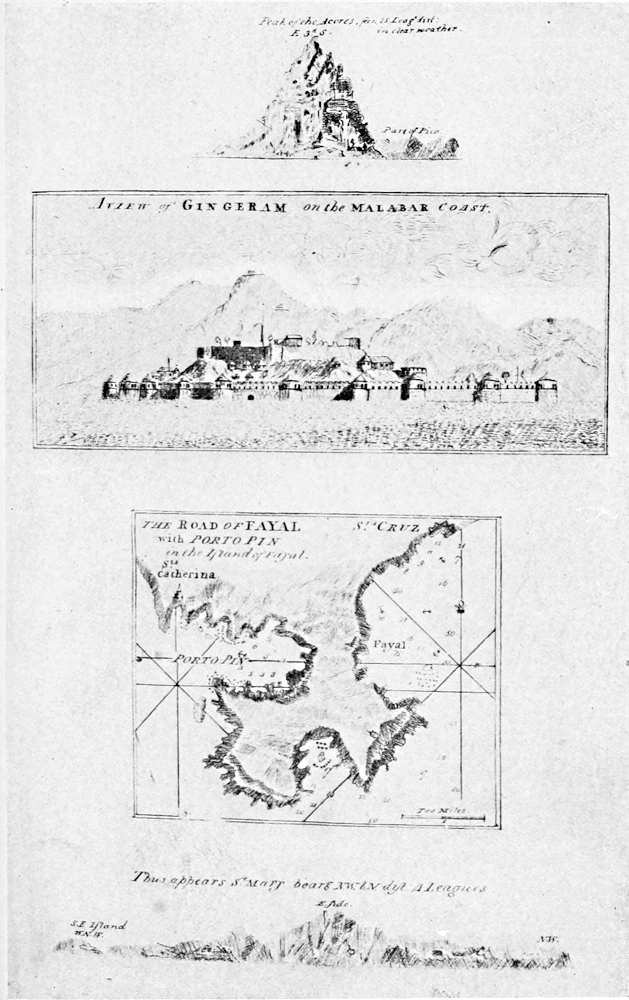 Peak of the Acores, 15 Leag.s dist:
E. 3.d S. in clear weather.
Part of Pico
A VIEW of GINGERAM on the MALABAR COAST.
THE ROAD OF FAYAL
with PORTO PIN
in the Iſland of Fayal.
S.ta CRUZ
S.ta
Catherina
Fayal
PORTO PIN
Two Miles
Thus appears S.t Mary bears NW.b N diſt 4 Leagues
E. ſide.
S.E Iſland
W.N.W.
N.W.